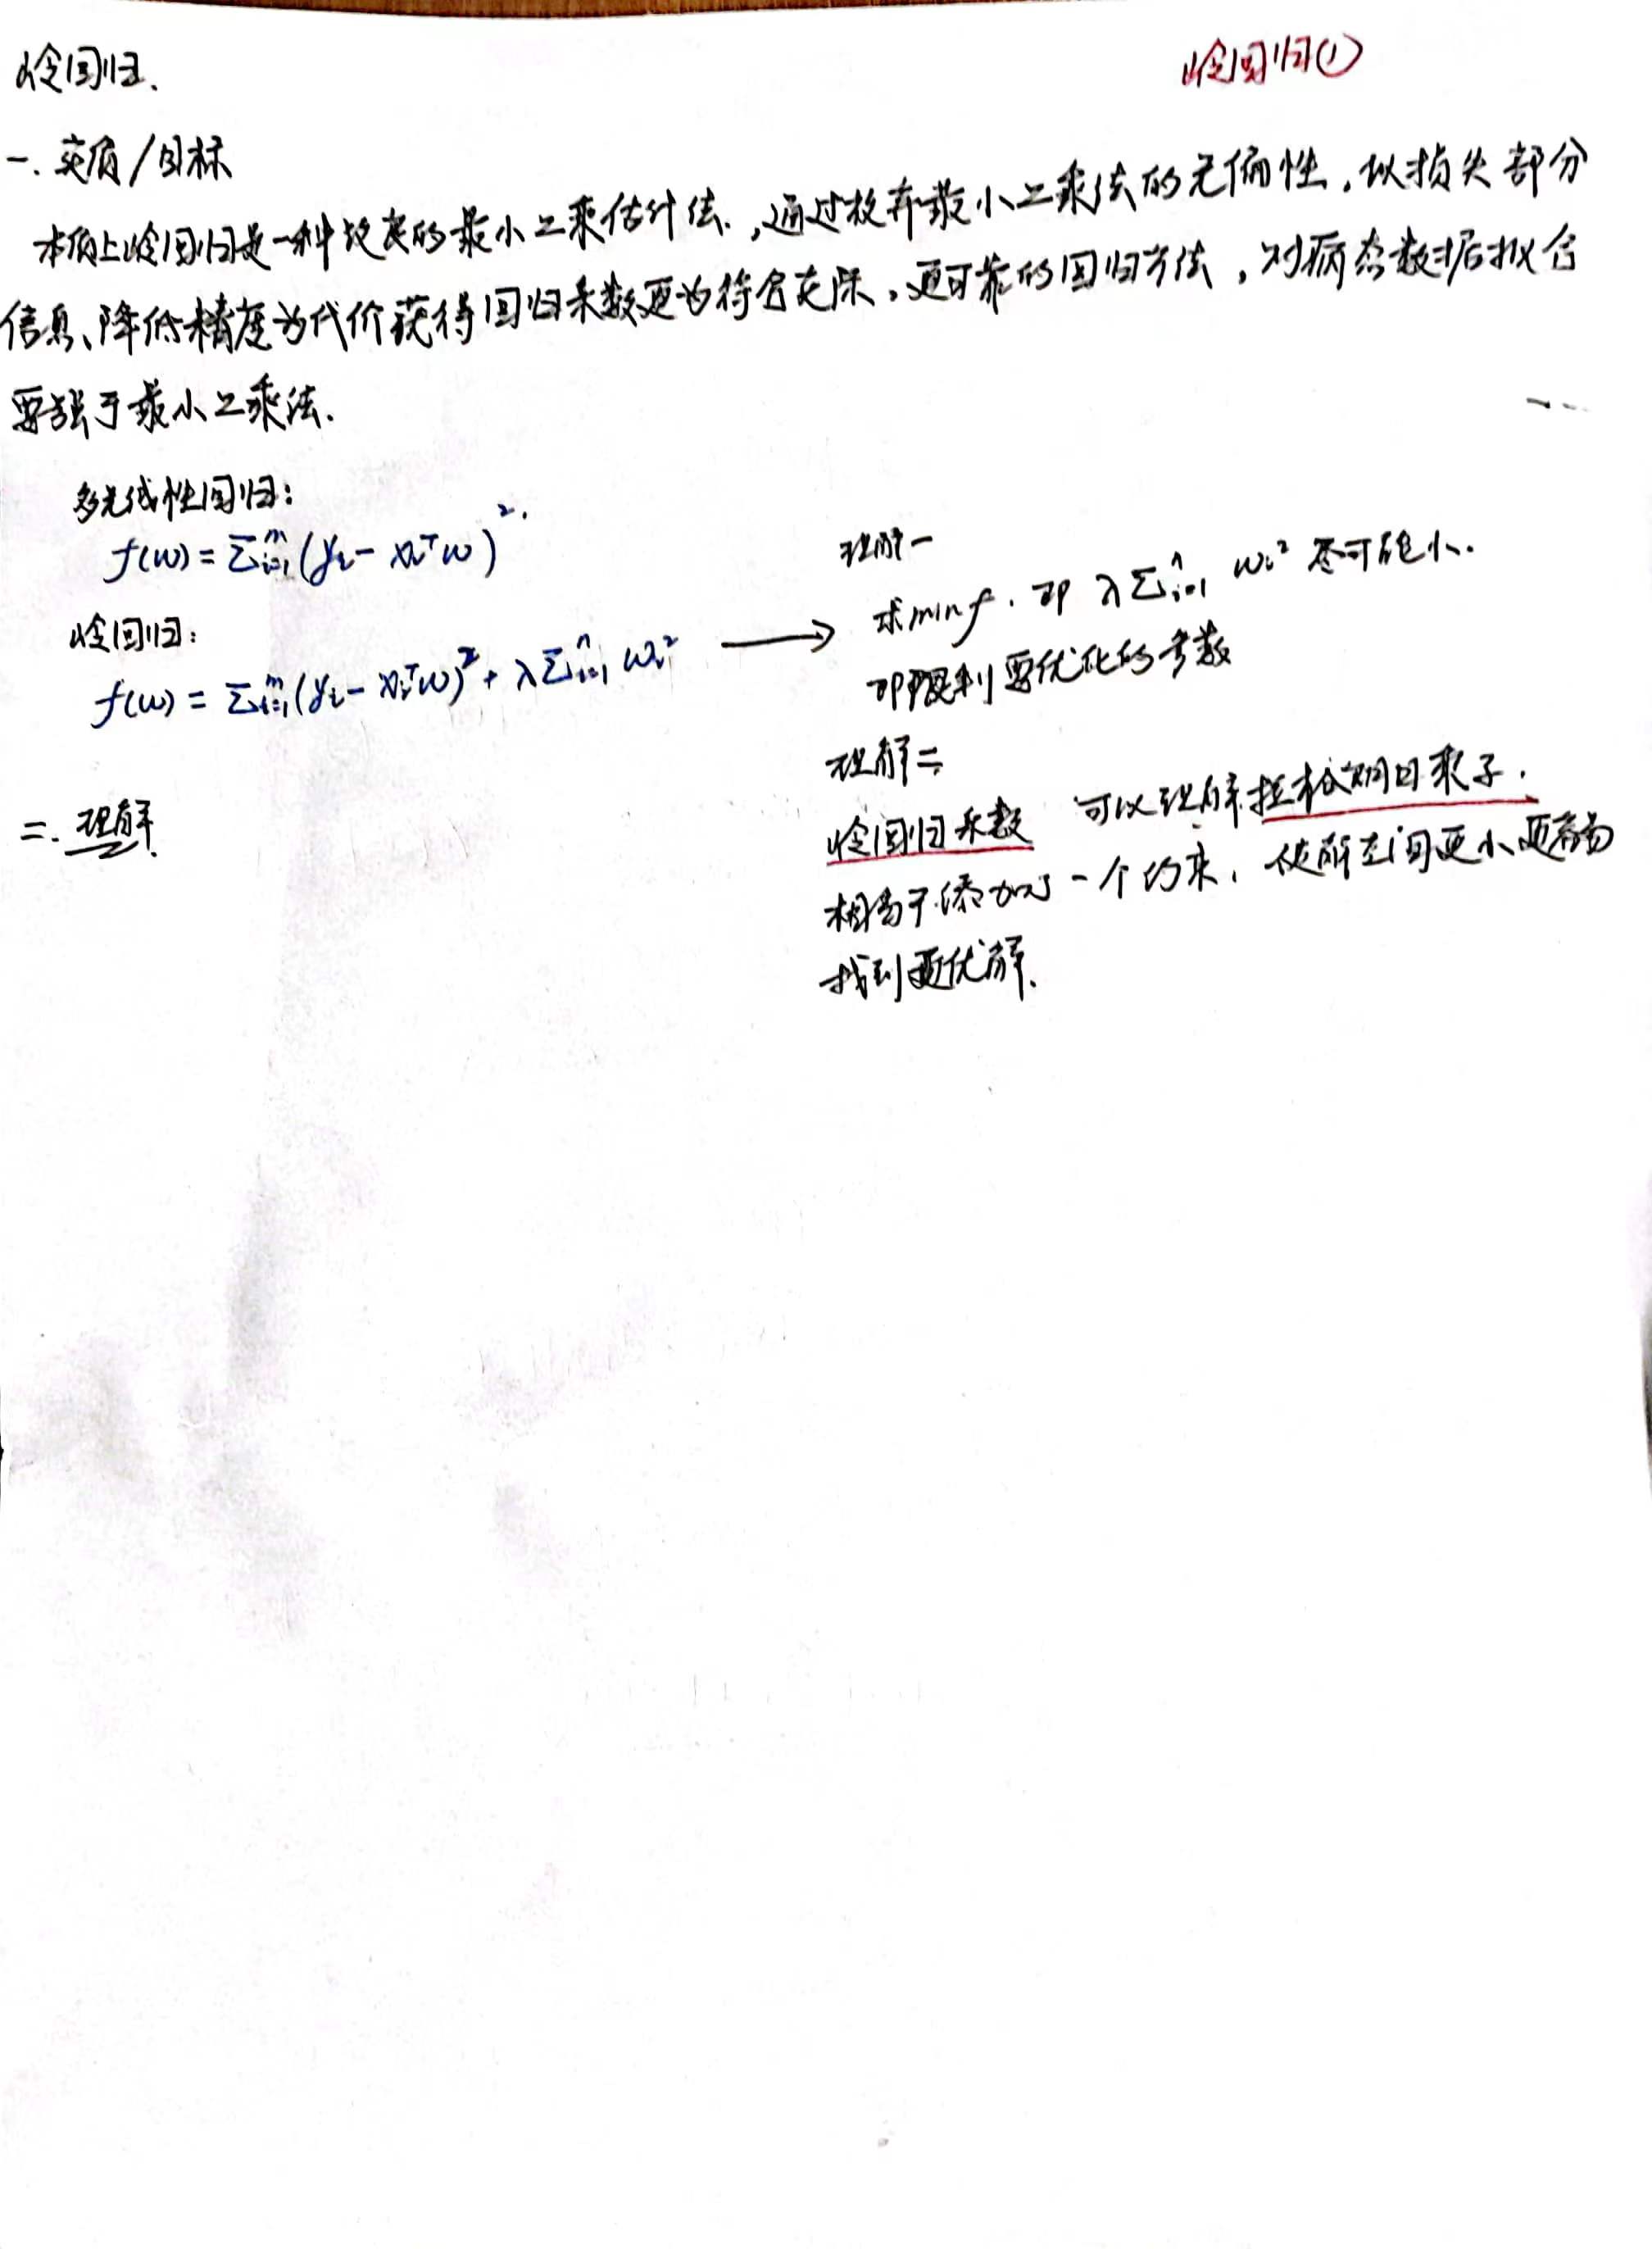 岭回归.
岭回归①
一. 实质/目标
本质上岭回归是一种改良的最小二乘估计法.,通过放弃最小二乘法的无偏性,以损失部分
信息、降低精度为代价获得回归系数更为符合实际,更可靠的回归方法,对病态数据拟合
要强于最小二乘法.
多元线性回归:
f(w) = Σᵢ₌₁ᵐ (yᵢ - xᵢᵀw)².
岭回归:
f(w) = Σᵢ₌₁ᵐ (yᵢ - xᵢᵀw)² + λ Σᵢ₌₁ⁿ wᵢ² →
理解一
求min f . 即 λ Σᵢ₌₁ⁿ wᵢ² 尽可能小.
即限制要优化的参数
理解二
岭回归系数 可以理解拉格朗日乘子.
相当于添加了一个约束, 使解空间更小更容易
找到更优解.
二. 理解